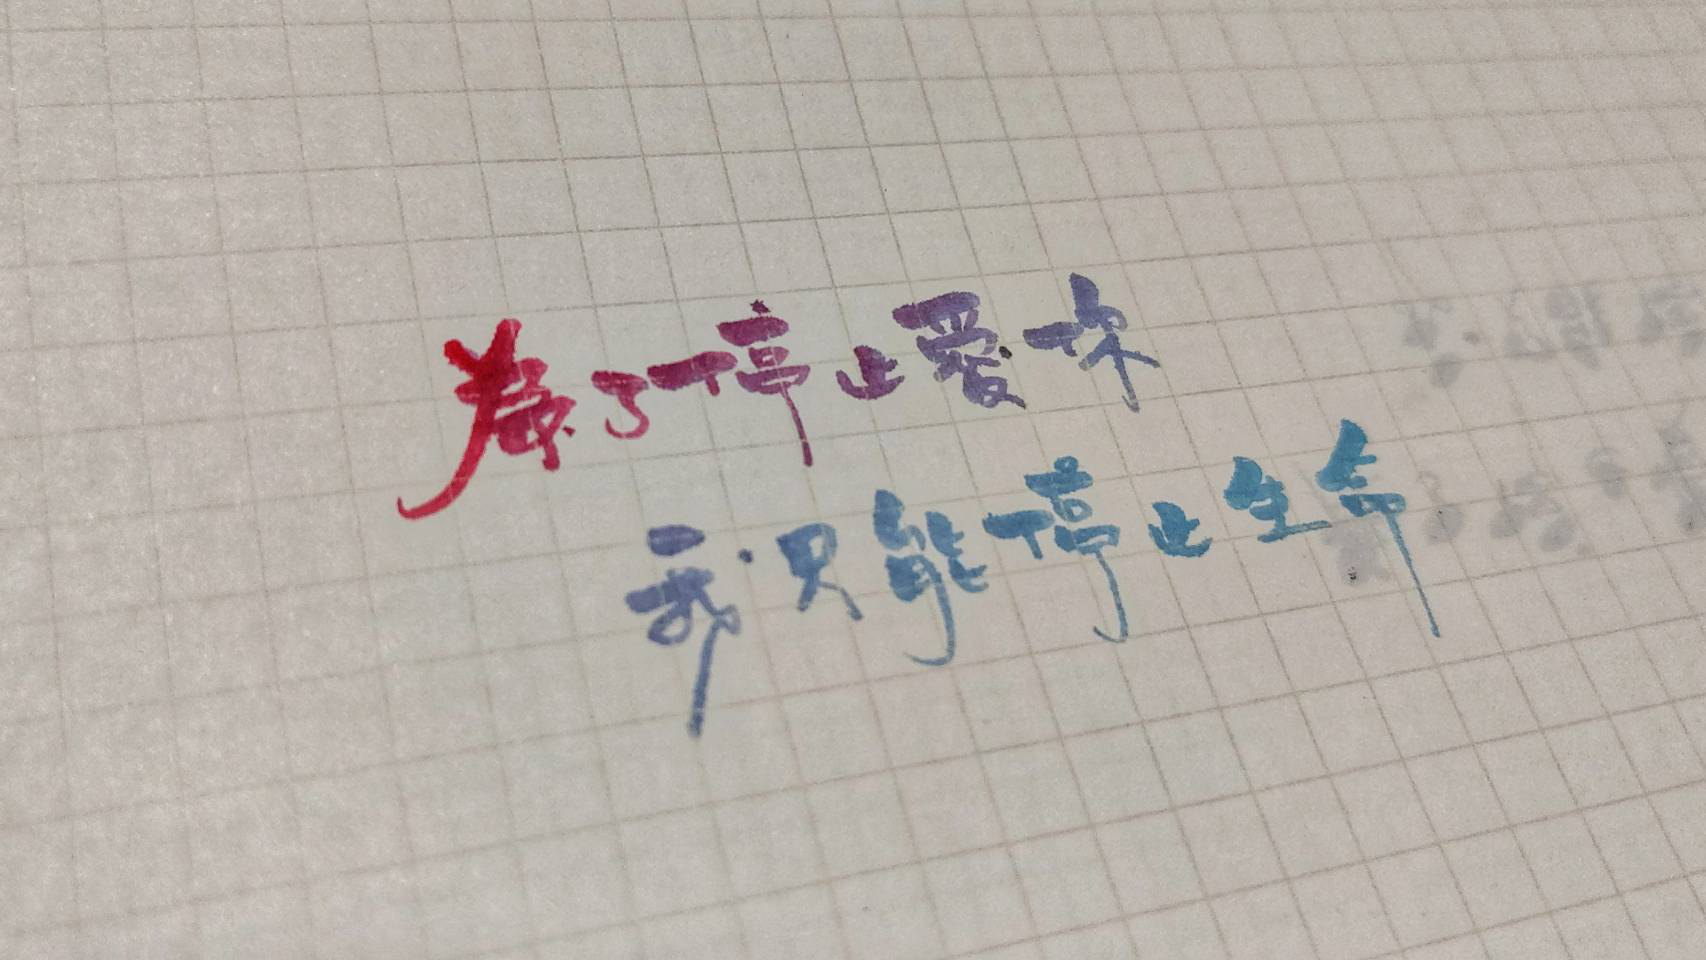 為了停止愛你
我只能停止生命